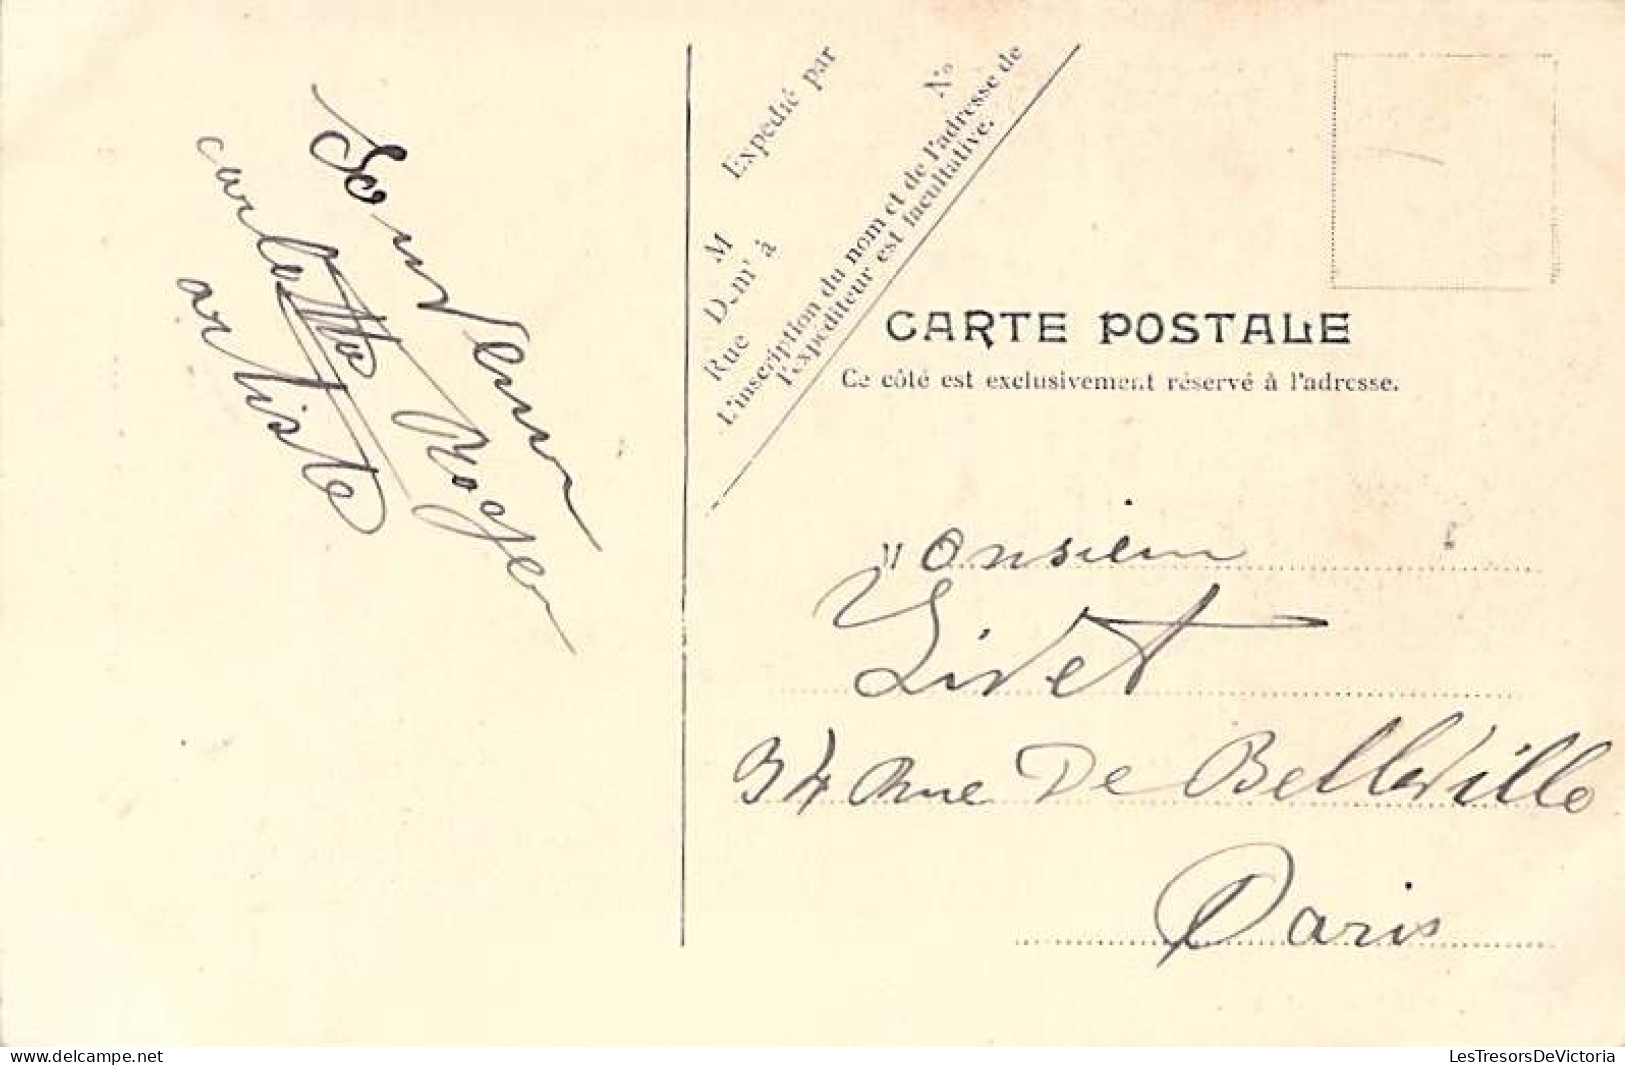 Souvenir
carlotta Roger
artiste
Expedié par
M
N°
Dom' à
Rue
L'inscription du nom et de l'adresse de
l'expéditeur est facultative.
CARTE POSTALE
Ce côté est exclusivement réservé à l'adresse.
Monsieur
Livet
34 Rue De Belleville
Paris
delcampe.net
LesTresorsDeVictoria